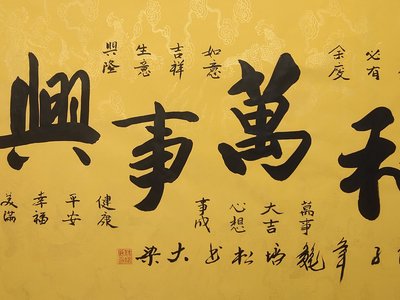 和萬事興
必有
余慶
如意
吉祥
生意
興隆
萬事
大吉
心想
事成
健康
平安
幸福
美滿
年
松
大
梁